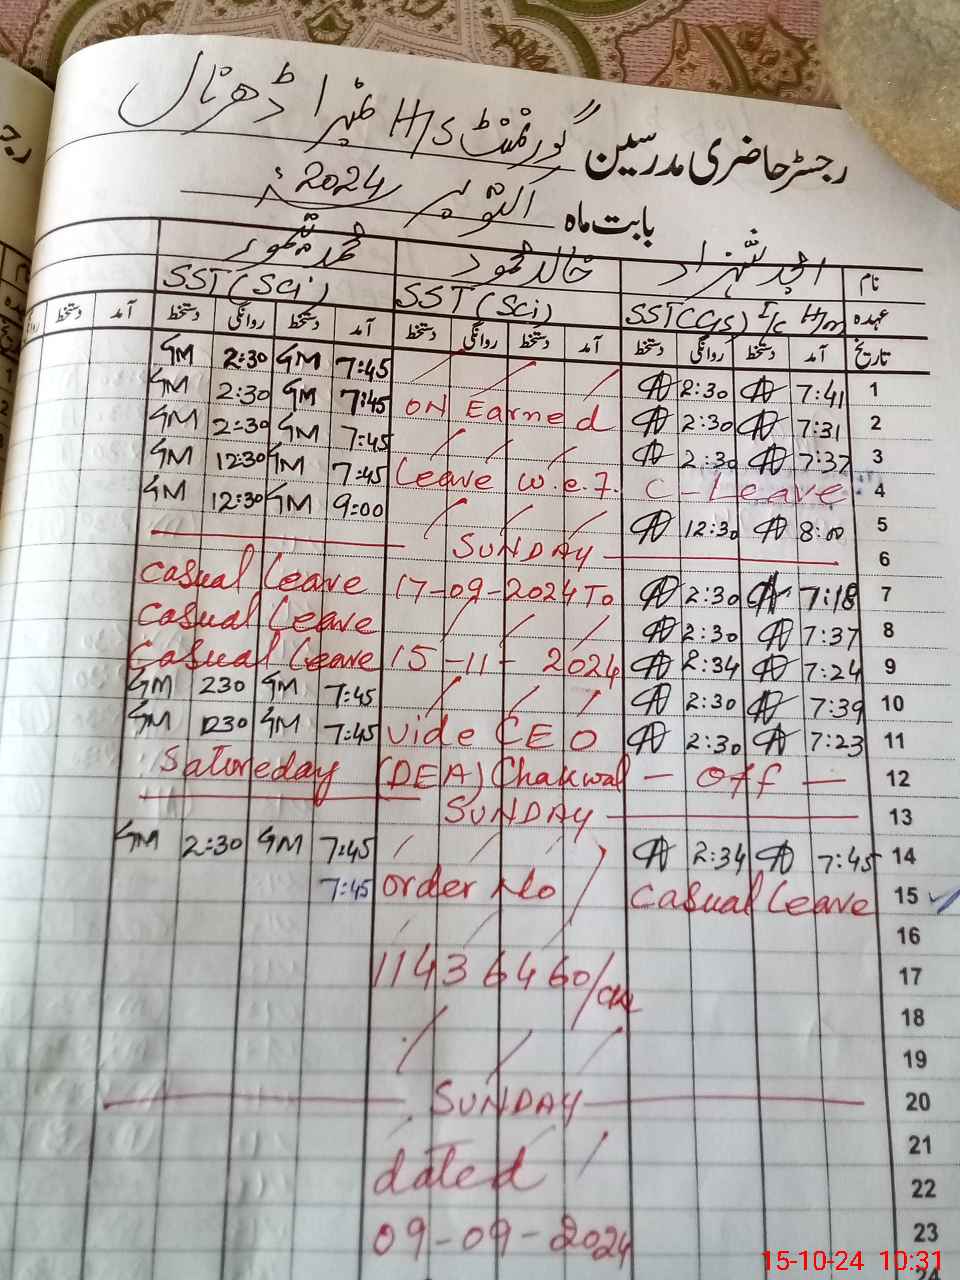 رجسٹر حاضری مدرسین گورنمنٹ H/S ڈھرنال
بابت ماہ اکتوبر 2024ء
نام امجد شہزاد خالد محمود محمد تیمور
عہدہ SST(GS) I/C H/m SST(Sci) SST(Sci)
تاریخ آمد دستخط روانگی دستخط آمد دستخط روانگی دستخط آمد دستخط روانگی دستخط آمد دستخط
1 7:41 2:30 7:45 GM 2:30 GM
2 7:31 2:30 ON Earned 7:45 GM 2:30 GM
3 7:37 2:30 7:45 GM 2:30 GM
4 C-Leave Leave w.e.f. 7:45 GM 12:30 GM
5 8:00 12:30 9:00 GM 12:30 GM
6 SUNDAY
7 7:18 2:30 17-09-2024 To Casual Leave
8 7:37 2:30 Casual Leave
9 7:24 2:34 15-11-2024 Casual Leave
10 7:39 2:30 7:45 GM 230 GM
11 7:23 2:30 vide CEO 7:45 GM 1230 GM
12 - Off - (DEA) Chakwal Satureday
13 SUNDAY
14 7:45 2:34 7:45 GM 2:30 GM
15 Casual Leave order No 7:45
16
17 11436460/
18
19
20 SUNDAY
21
22 dated
23 09-09-2024
24
15-10-24 10:31